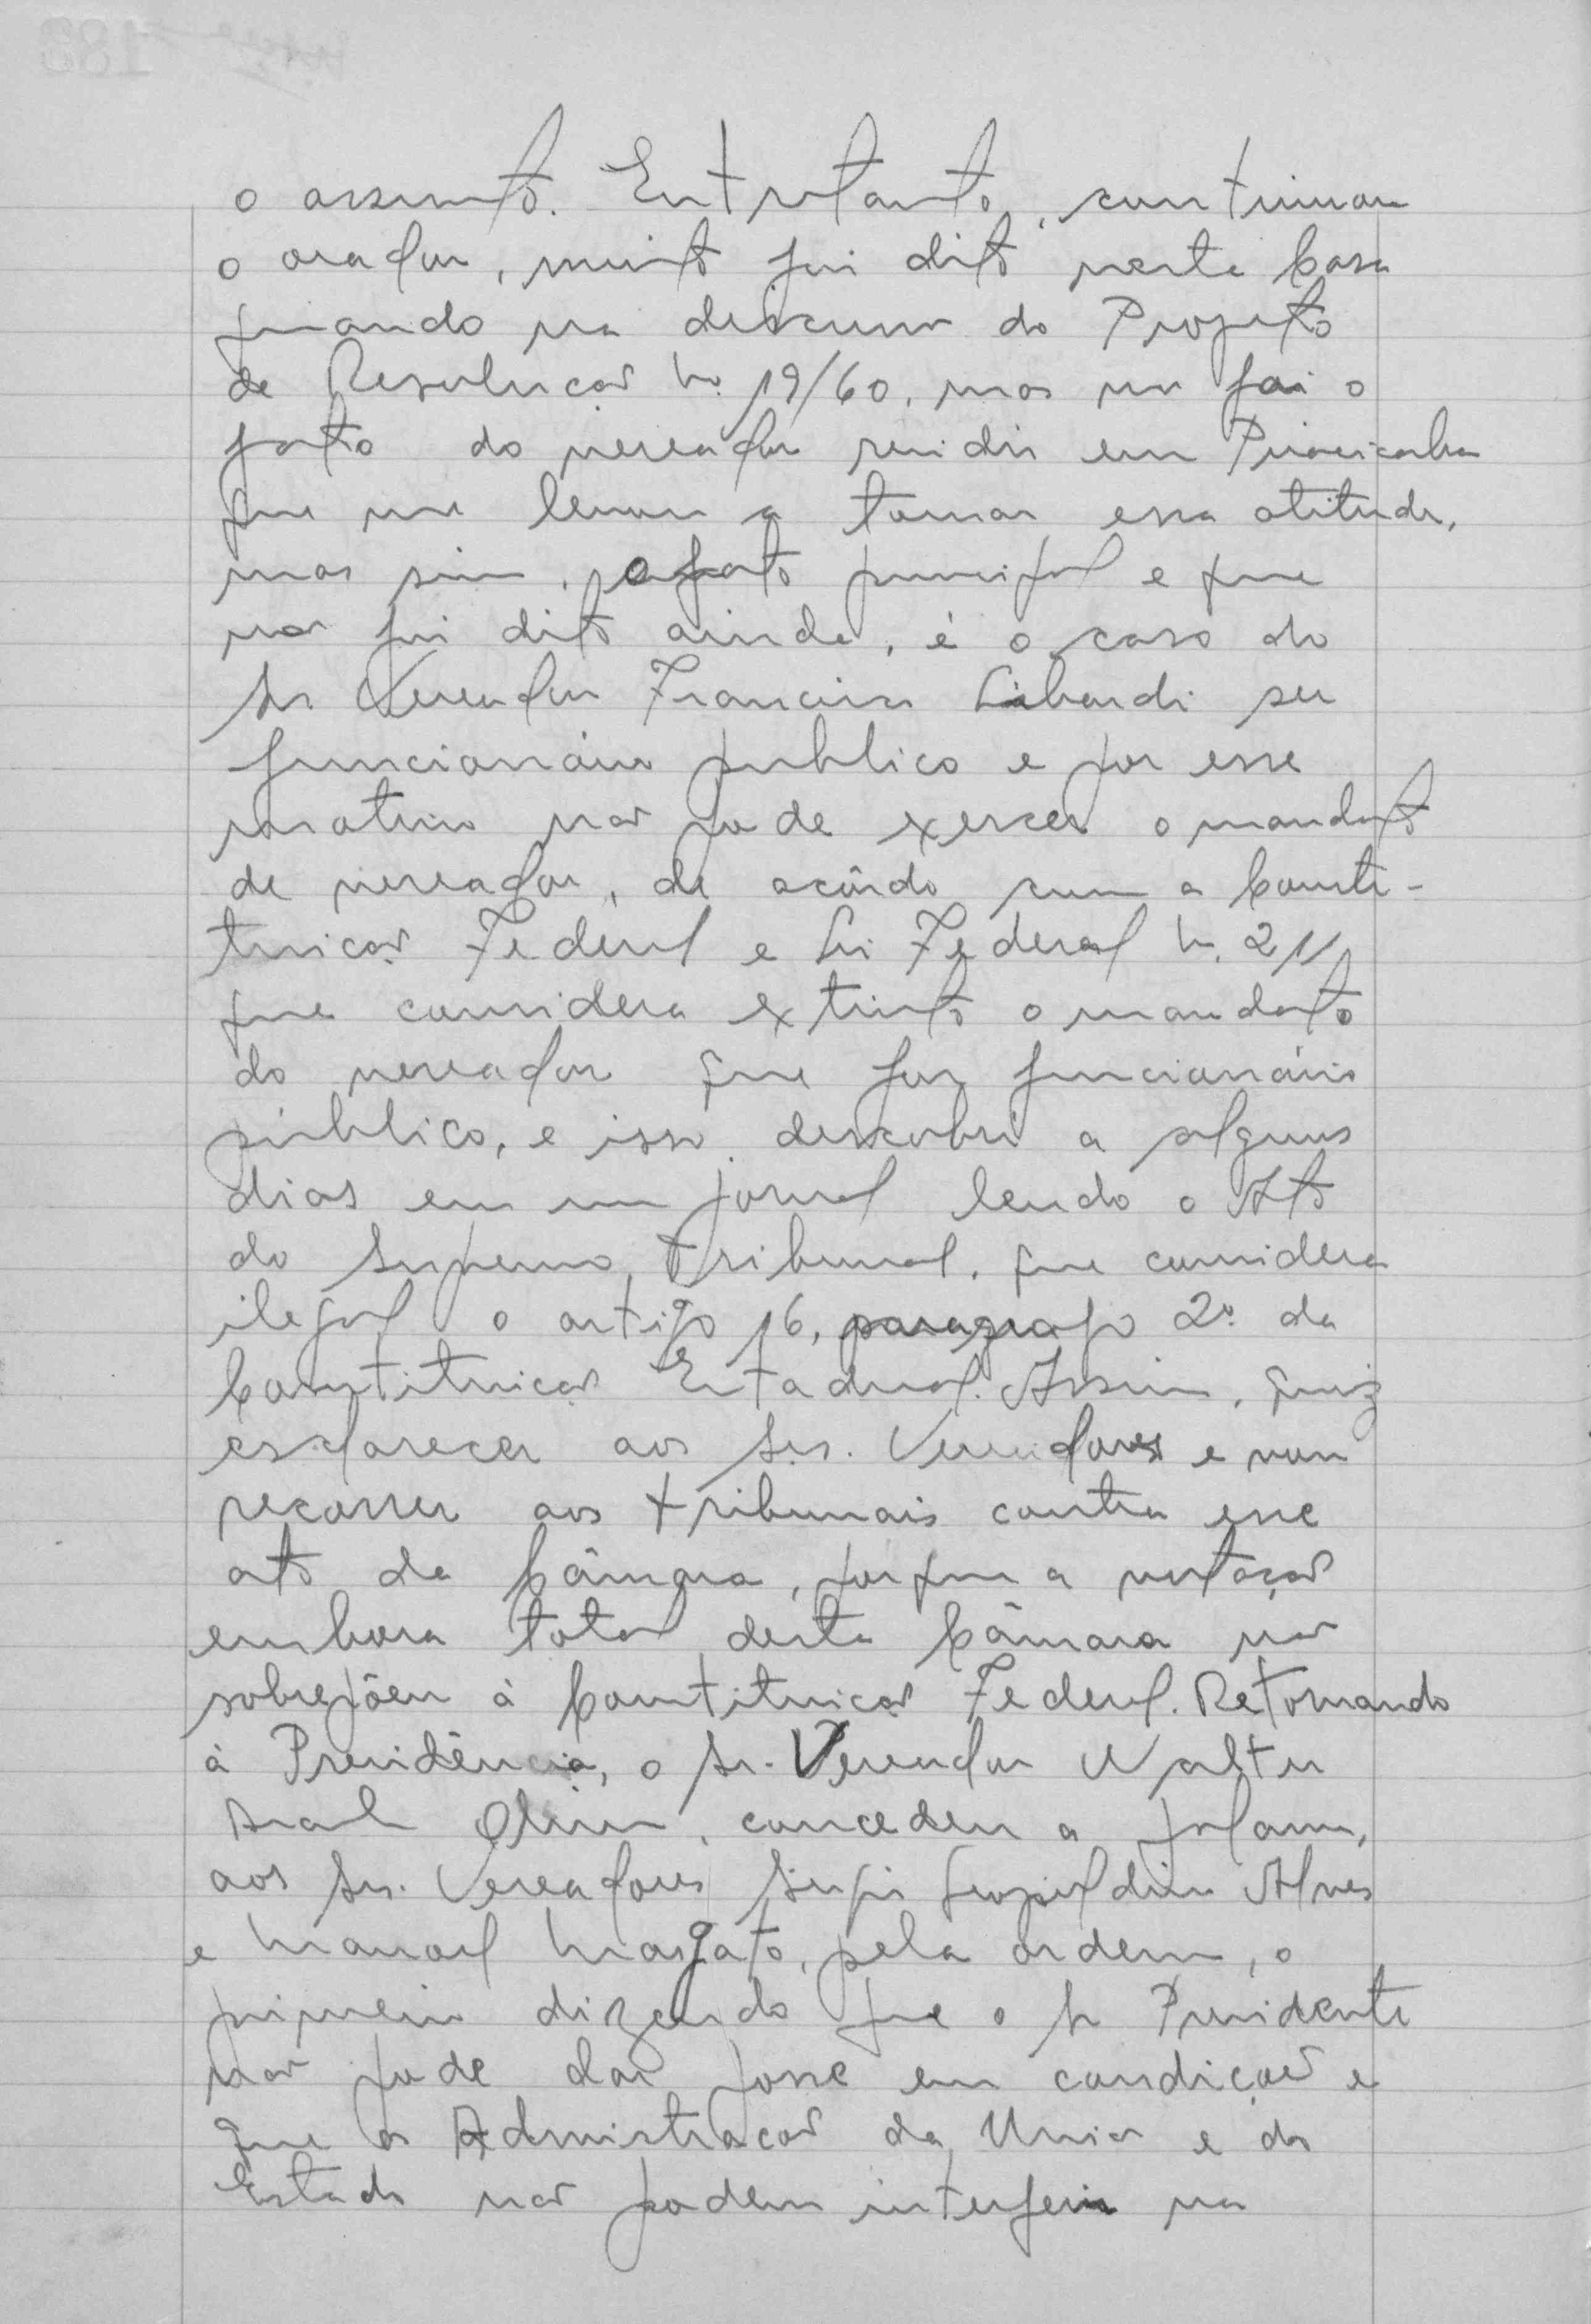 o assunto. Entretanto, continuou
o orador, muito foi dito nesta Casa
quando na discussão do Projeto
de Resolução No. 19/60, mas não foi o
fato do vereador residir em Piracicaba
que me levou a tomar essa atitude,
mas sim, o fato principal e que
não foi dito ainda, é o caso do
Sr Vereador Francisco Libardi ser
funcionário publico e por esse
motivo não pode exercer o mandato
de vereador, de acôrdo com a Consti-
tuição Federal e Lei Federal n. 211
que considera extinto o mandato
do vereador que for funcionário
público, e isso descobri a alguns
dias em um jornal lendo o Ato
do Supremo Tribunal, que considera
ilegal o artigo 16, paragrafo 2º da
Constituição Estadual. Assim, quiz
esclarecer aos Srs. Vereadores e vou
recorrer aos tribunais contra esse
ato da Câmara, porque a votação
embora total desta Câmara não
sobrepõem à Constituição Federal. Retornando
à Presidência, o Sr. Vereador Walter
concedeu a palavra,
aos Srs. Vereadores Leopoldino Alves
e Manoel Morgato, pela ordem, o
primeiro dizendo que o Sr Presidente
não pode dar posse em condição e
que a Admistração da União e do
Estado não podem interferir na